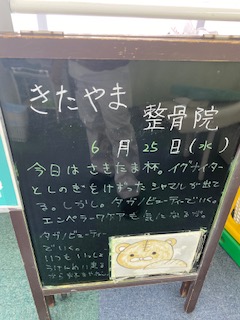 きたやま
整骨院
6月25日(水)
今日はさきたま杯。イグナイター
としのぎをけずったシャマルが出て
る。しかし。タガノビューティーでいく。
エンペラーワケアも気になるが。
タガノビューティー
でいく。
いつもいっしょ
うけんめい走る
から